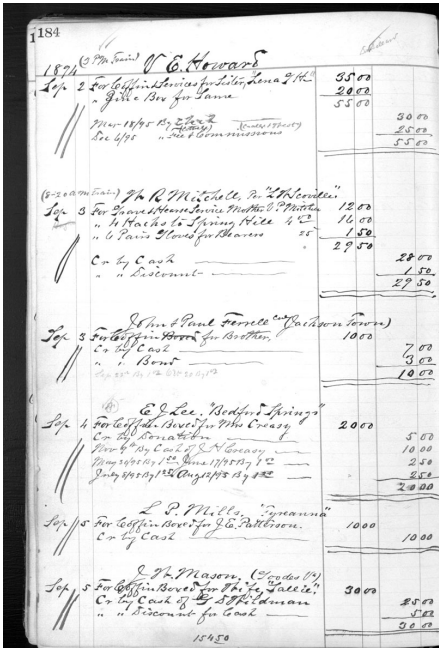 184
1894 (3 P.M. Train) V E. Howard
Sep 2 For Coffin & Services for Sister, Lena 35 00
" Box for Same 20 00
55 00
Mar 18/95 By 30 00
Dec 6/95 " Commissions 25 00
55 00
(8-20 a m Train) W. R. Mitchell, Per "L. H. Scoville"
Sep 3 For Grave & Hearse Service Mother 12 00
" 4 Hacks to Spring Hill 4 00 16 00
" 6 Pairs Gloves for Bearers 25 1 50
29 50
Cr by Cash 28 00
" " Discount 1 50
29 50
John & Paul Ferrell (Jackson Town)
Sep 3 For Coffin for Brother, 10 00
Cr by Cash 7 00
" " Bond 3 00
10 00
E. J. Lee. "Bedford Springs"
Sep 4 For Coffin Boxed for Mrs Creasy 20 00
Cr by Donation 5 00
Nov 9th By Cash of J H Creasy 10 00
May 24/95 By 1 50 June 17/95 By 1 00 2 50
July 8/95 By 1 25 Aug 12/95 By 2 50
20 00
L. P. Mills, "Tyreanna"
Sep 5 For Coffin Boxed for J. E. Patterson. 10 00
Cr by Cash 10 00
J. W. Mason, (Goodes Va)
Sep 5 For Coffin Boxed for Wife, "Sallie". 30 00
Cr by Cash of Wildman 25 00
" " Discount for Cash 5 00
30 00
154 50